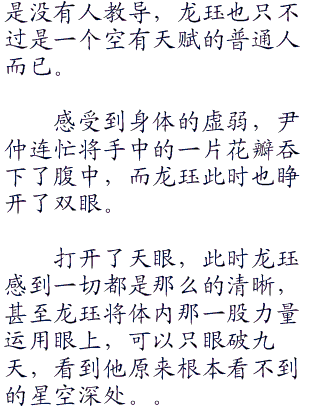 是没有人教导，龙珏也只不
过是一个空有天赋的普通人
而已。
感受到身体的虚弱，尹
仲连忙将手中的一片花瓣吞
下了腹中，而龙珏此时也睁
开了双眼。
打开了天眼，此时龙珏
感到一切都是那么的清晰，
甚至龙珏将体内那一股力量
运用眼上，可以只眼破九
天，看到他原来根本看不到
的星空深处。。